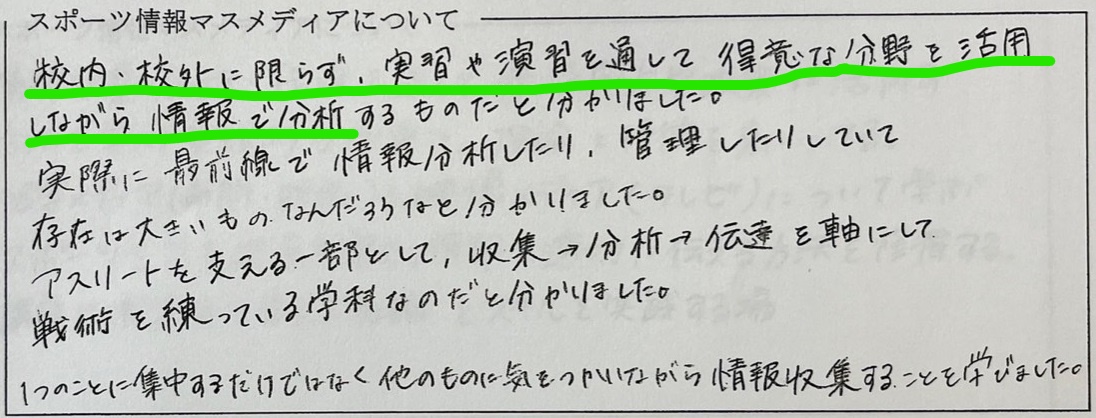 スポーツ情報マスメディアについて
校内・校外に限らず、実習や演習を通して得意な分野を活用
しながら情報で分析するものだと分かりました。
実際に最前線で情報分析したり、管理したりしていて
存在は大きいものなんだろうなと分かりました。
アスリートを支える一部として、収集→分析→伝達を軸にして
戦術を練っている学科なのだと分かりました。
1つのことに集中するだけではなく他のものに気をつかいながら情報収集することを学びました。